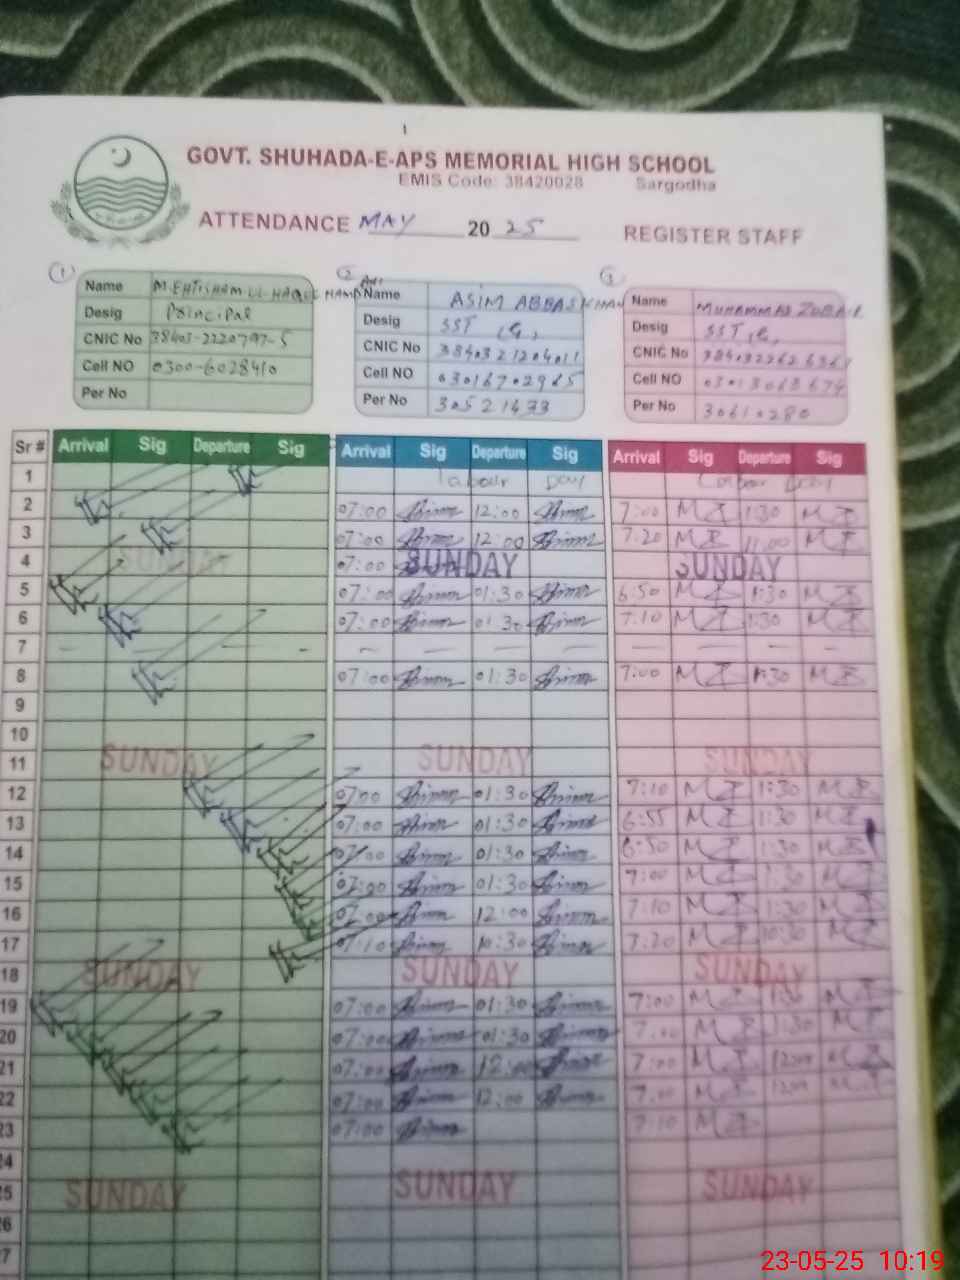 GOVT. SHUHADA-E-APS MEMORIAL HIGH SCHOOL
EMIS Code: 38420028 Sargodha
ATTENDANCE MAY 2025 REGISTER STAFF
1 2 3
Name M. EHTISHAM UL HAQUE Name ASIM ABBAS KHAN Name MUHAMMAD ZUBAIR
Desig Principal Desig SST (G) Desig SST (G)
CNIC No 38403-2220797-5 CNIC No CNIC No
Cell NO 0300-6028410 Cell NO 03016702965 Cell NO
Per No Per No 30521433 Per No 30610280
Sr # Arrival Sig Departure Sig Arrival Sig Departure Sig Arrival Sig Departure Sig
1 Labour Day Labour Day
2 07:00 12:00 7:00 MZ 1:30 MZ
3 07:00 12:00 7:20 MZ 11:00 MZ
4 SUNDAY 07:00 SUNDAY SUNDAY
5 07:00 01:30 6:50 MZ 1:30 MZ
6 07:00 01:30 7:10 MZ 1:30 MZ
7 — — — — — — — — — —
8 07:00 01:30 7:00 MZ 1:30 MZ
9
10
11 SUNDAY SUNDAY SUNDAY
12 07:00 01:30 7:10 MZ 1:30 MZ
13 07:00 01:30 6:55 MZ 1:30 MZ
14 07:00 01:30 6:50 MZ 1:30 MZ
15 07:00 01:30 7:00 MZ 1:30 MZ
16 07:00 12:00 7:10 MZ 1:30 MZ
17 07:10 10:30 7:20 MZ 10:30 MZ
18 SUNDAY SUNDAY SUNDAY
19 07:00 01:30 7:00 MZ 1:30 MZ
20 07:00 01:30 7:00 MZ 1:30 MZ
21 07:00 12:00 7:00 MZ 12:00 MZ
22 07:00 12:00 7:00 MZ 12:00 MZ
23 07:00 7:10 MZ
24
25 SUNDAY SUNDAY SUNDAY
26
27
23-05-25 10:19